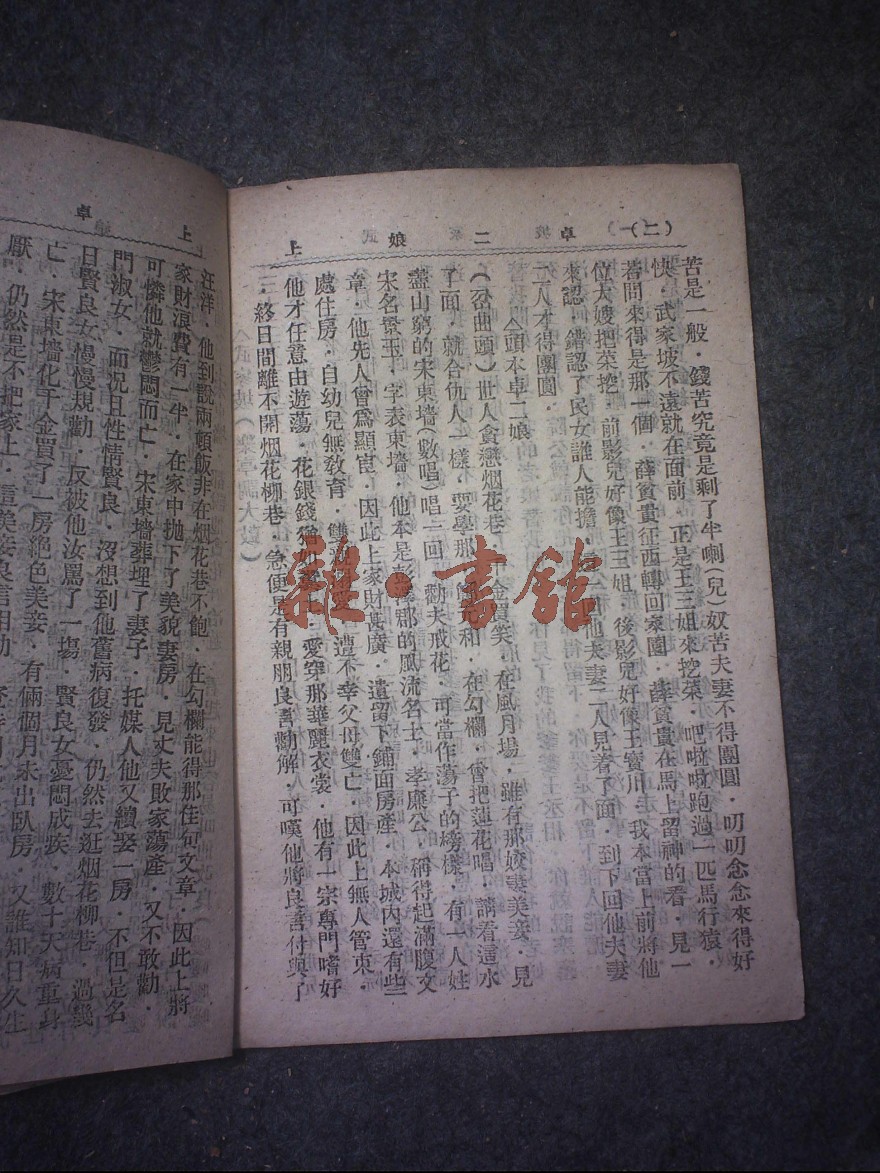 (二一) 卓 二 娘 上
苦是一般．錢苦究竟是剩了半喇(兒)奴苦夫妻不得團圓．叨叨念念來得好
快．武家坡不遠就在面前．正是王三姐來挖菜．吧啦啦跑過一匹馬行猿．
若問來得是那一個．薛貧貴征西轉回家園．薛貧貴在馬上留神的看．見一
位大嫂把菜挖．前影兒好像王三姐．後影兒好像王寶川．我本當上前將他
來認．錯認了民女誰人能擔．他夫妻二人見着了面．到下回他夫妻
二人才得團圓．
△頭本卓二娘
(岔曲頭)世人貪戀烟花巷．千金買笑．在風月場．雖有那姣妻美妾．見
了面．就合仇人一樣．要學那 元和．在勾欄．會把蓮花唱．請看這水
盡山窮的宋東墻(數唱)唱一回．勸夫戒花．可當作蕩子的榜樣．有一人姓
宋名景玉．字表東墻．他本是彭 郡的風流名士．孝廉公．稱得起滿腹文
章．他先人曾爲顯宦．因此上家財甚廣．遺留下鋪面房產．本城內還有些
處住房．自幼兒無教育．遭不幸父母雙亡．因此上無人管束．
他才任意由遊蕩．花銀錢 愛穿那華麗衣裳．他有一宗專門嗜好
．終日間離不開烟花柳巷．急便是有親朋良言勸解．可嘆他將良言付與了
上 卓
汪洋．他到說兩頓飯非在烟花巷不飽．在勾欄能得那佳句文章．因此上將
家財浪費有一半．在家中拋下了美貌妻房．見丈夫敗家蕩產．又不敢勸．
可憐他就鬱悶而亡．宋東墻葬埋了妻子．托媒人他又續娶一房．不但是名
門淑女．而況且性情賢良．沒想到他舊病復發．仍然去逛烟花柳巷．過幾
日賢良女．慢慢規勸．反被他汝罵了一塲．賢良女憂悶成疾．數十天病重身
亡．宋東墻化千金買了一房絕色美妾．有倆個月未出臥房．又誰知日久生
厭．仍然是不把家上．這美妾良言相勸
雜·書館